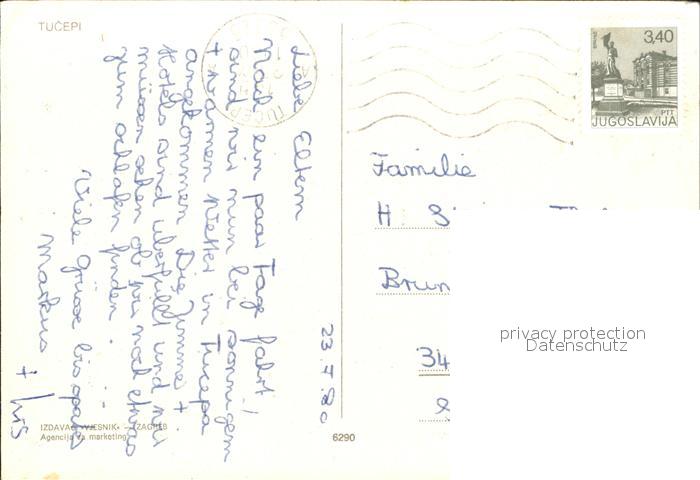 TUČEPI
3,40
PTT
JUGOSLAVIJA
TUČEPI
23.7.80
Liebe Eltern
Nach ein paar Tage fahrt!
sind wir nun bei sonnigem
+ warmen Wetter in Tucepa
angekommen. Die Zimmer +
Hotels sind überfüllt und wir
müssen sehen ob wir noch etwas
zum schlafen finden.
Viele Grüsse bis später
Markus +
Familie
H
Brun
34
privacy protection
Datenschutz
IZDAVAČ »VJESNIK« — ZAGREB
Agencija za marketing
6290